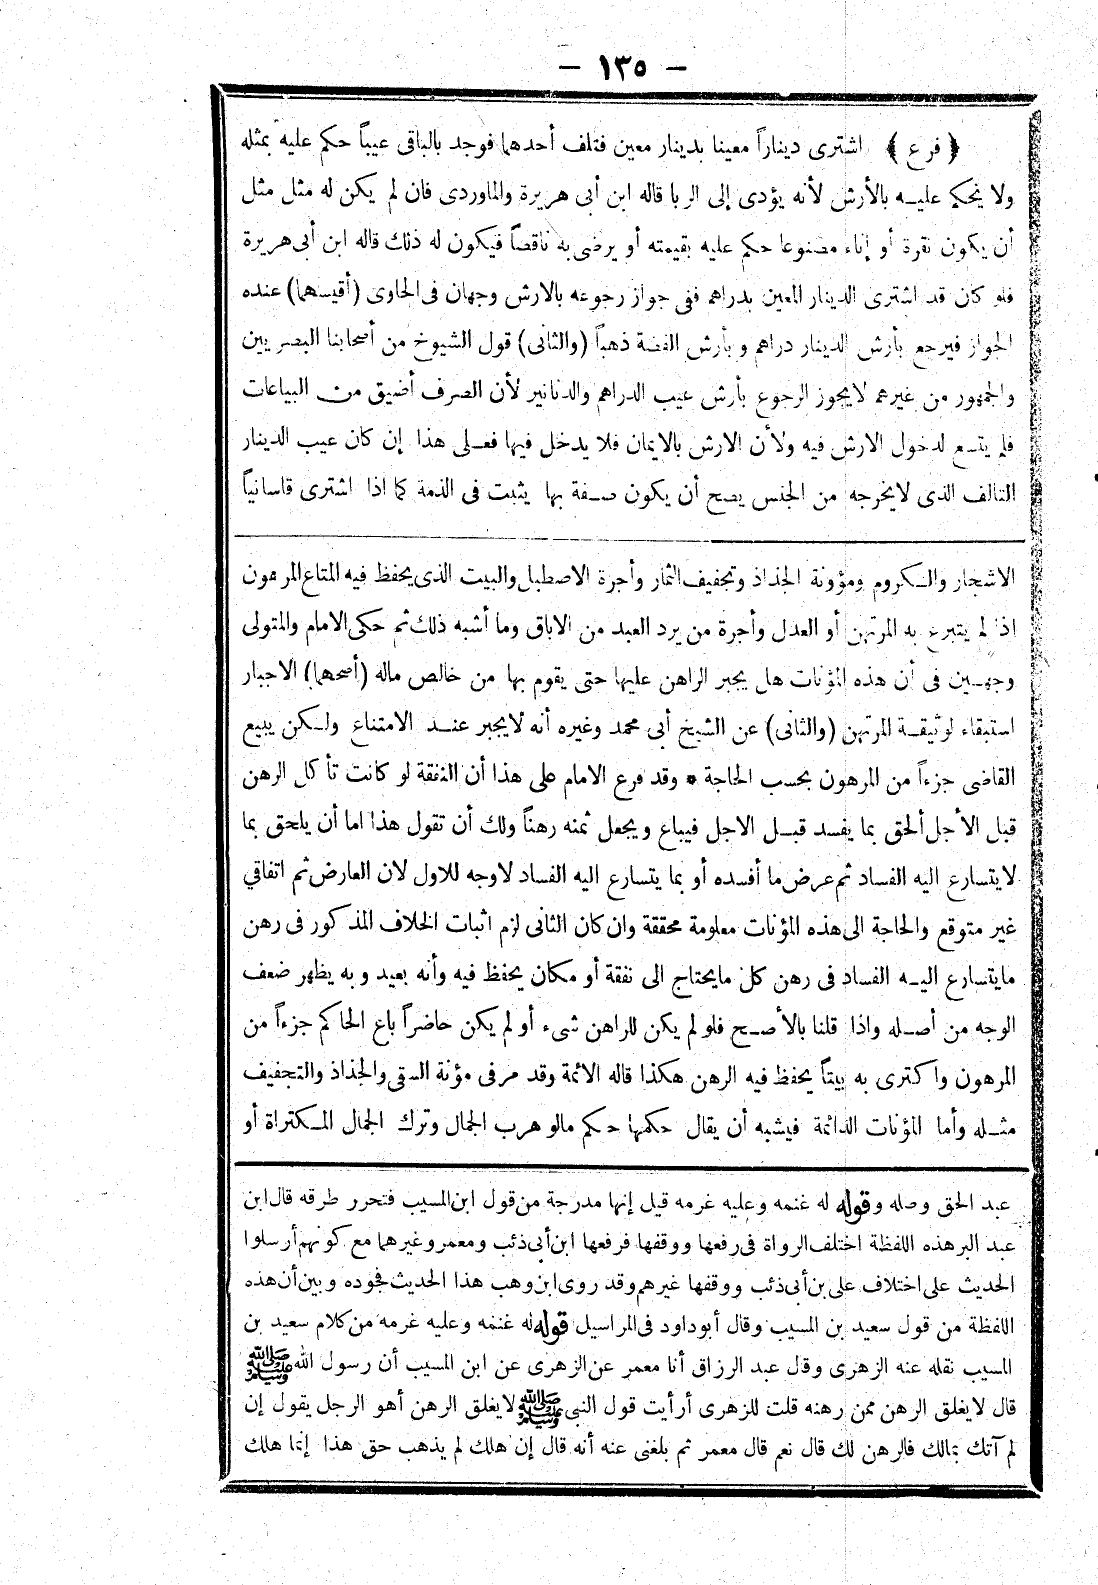 — ١٣٥ —
﴿ فرع ﴾ اشترى ديناراً معينا بدينار معين فتلف أحدهما فوجد بالباقى عيباً حكم عليه بمثله
ولا يحكم عليـه بالأرش لأنه يؤدى إلى الربا قاله ابن أبى هريرة والماوردى فان لم يكن له مثل مثل
أن يكون نقرة أو إناء مصنوعا حكم عليه بقيمته أو يرضى به ناقصاً فيكون له ذلك قاله ابن أبى هريرة
فلو كان قد اشترى الدينار المعين بدراهم ففى جواز رجوعه بالارش وجهان فى الحاوى (أقيسهما) عنده
الجواز فيرجع بأرش الدينار دراهم وبأرش الفضة ذهباً (والثانى) قول الشيوخ من أصحابنا البصريين
والجمهور من غيرهم لايجوز الرجوع بأرش عيب الدراهم والدنانير لأن الصرف أضيق من البياعات
فلم يتسع لدخول الارش فيه ولأن الارش بالايمان فلا يدخل فيها فعـلى هذا إن كان عيب الدينار
التالف الذى لايخرجه من الجنس يصح أن يكون صـفة بها يثبت فى الذمة كما اذا اشترى قاسانياً
الاشجار والـكروم ومؤونة الجذاذ وتجفيف الثمار وأجرة الاصطبل والبيت الذى يحفظ فيه المتاع المرهون
اذا لم يتبرع به المرتهن أو العدل وأجرة من يرد العبد من الاباق وما أشبه ذلك ثم حكى الامام والمتولى
وجهـين فى أن هذه المؤنات هل يجبر الراهن عليها حتى يقوم بها من خالص ماله (أصحهما) الاجبار
استبقاء لوثيقـة المرتهن (والثانى) عن الشيخ أبى محمد وغيره أنه لايجبر عنـد الامتناع ولـكن يبيع
القاضى جزءاً من المرهون بحسب الحاجة * وقد فرع الامام على هذا أن النفقة لو كانت تأكل الرهن
قبل الأجل ألحق بما يفسد قبـل الاجل فيباع ويجعل ثمنه رهناً ولك أن تقول هذا اما أن يلحق بما
لايتسارع اليه الفساد ثم عرض ما أفسده أو بما يتسارع اليه الفساد لاوجه للاول لان العارض ثم اتفاقي
غير متوقع والحاجة الى هذه المؤنات معلومة محققة وان كان الثانى لزم اثبات الخلاف المذكور فى رهن
مايتسارع اليـه الفساد فى رهن كل مايحتاج الى نفقة أو مكان يحفظ فيه وأنه بعيد وبه يظهر ضعف
الوجه من أصـله واذا قلنا بالأصـح فلو لم يكن للراهن شىء أو لم يكن حاضراً باع الحاكم جزءاً من
المرهون واكترى به بيتاً يحفظ فيه الرهن هكذا قاله الائمة وقد مر فى مؤنة السقى والجذاذ والتجفيف
مثـله وأما المؤنات الدائمة فيشبه أن يقال حكمها حكم مالو هرب الجمال وترك الجمال المـكتراة أو
عبد الحق وصله وقوله له غنمه وعليه غرمه قيل إنها مدرجة من قول ابن المسيب فتحرر طرقه قال ابن
عبد البر هذه اللفظة اختلف الرواة فى رفعها ووقفها فرفعها ابن أبى ذئب ومعمر وغيرهما مع كونهم أرسلوا
الحديث على اختلاف على بن أبى ذئب ووقفها غيرهم وقد روى ابن وهب هذا الحديث فجوده وبين أن هذه
اللفظة من قول سعيد بن المسيب وقال أبو داود فى المراسيل قوله له غنمه وعليه غرمه من كلام سعيد بن
المسيب نقله عنه الزهرى وقل عبد الرزاق أنا معمر عن الزهرى عن ابن المسيب أن رسول الله ﷺ
قال لا يغلق الرهن ممن رهنه قلت للزهرى أرأيت قول النبى ﷺ لا يغلق الرهن أهو الرجل يقول إن
لم آتك بمالك فالرهن لك قال نعم قال معمر ثم بلغنى عنه أنه قال إن هلك لم يذهب حق هذا إنما هلك